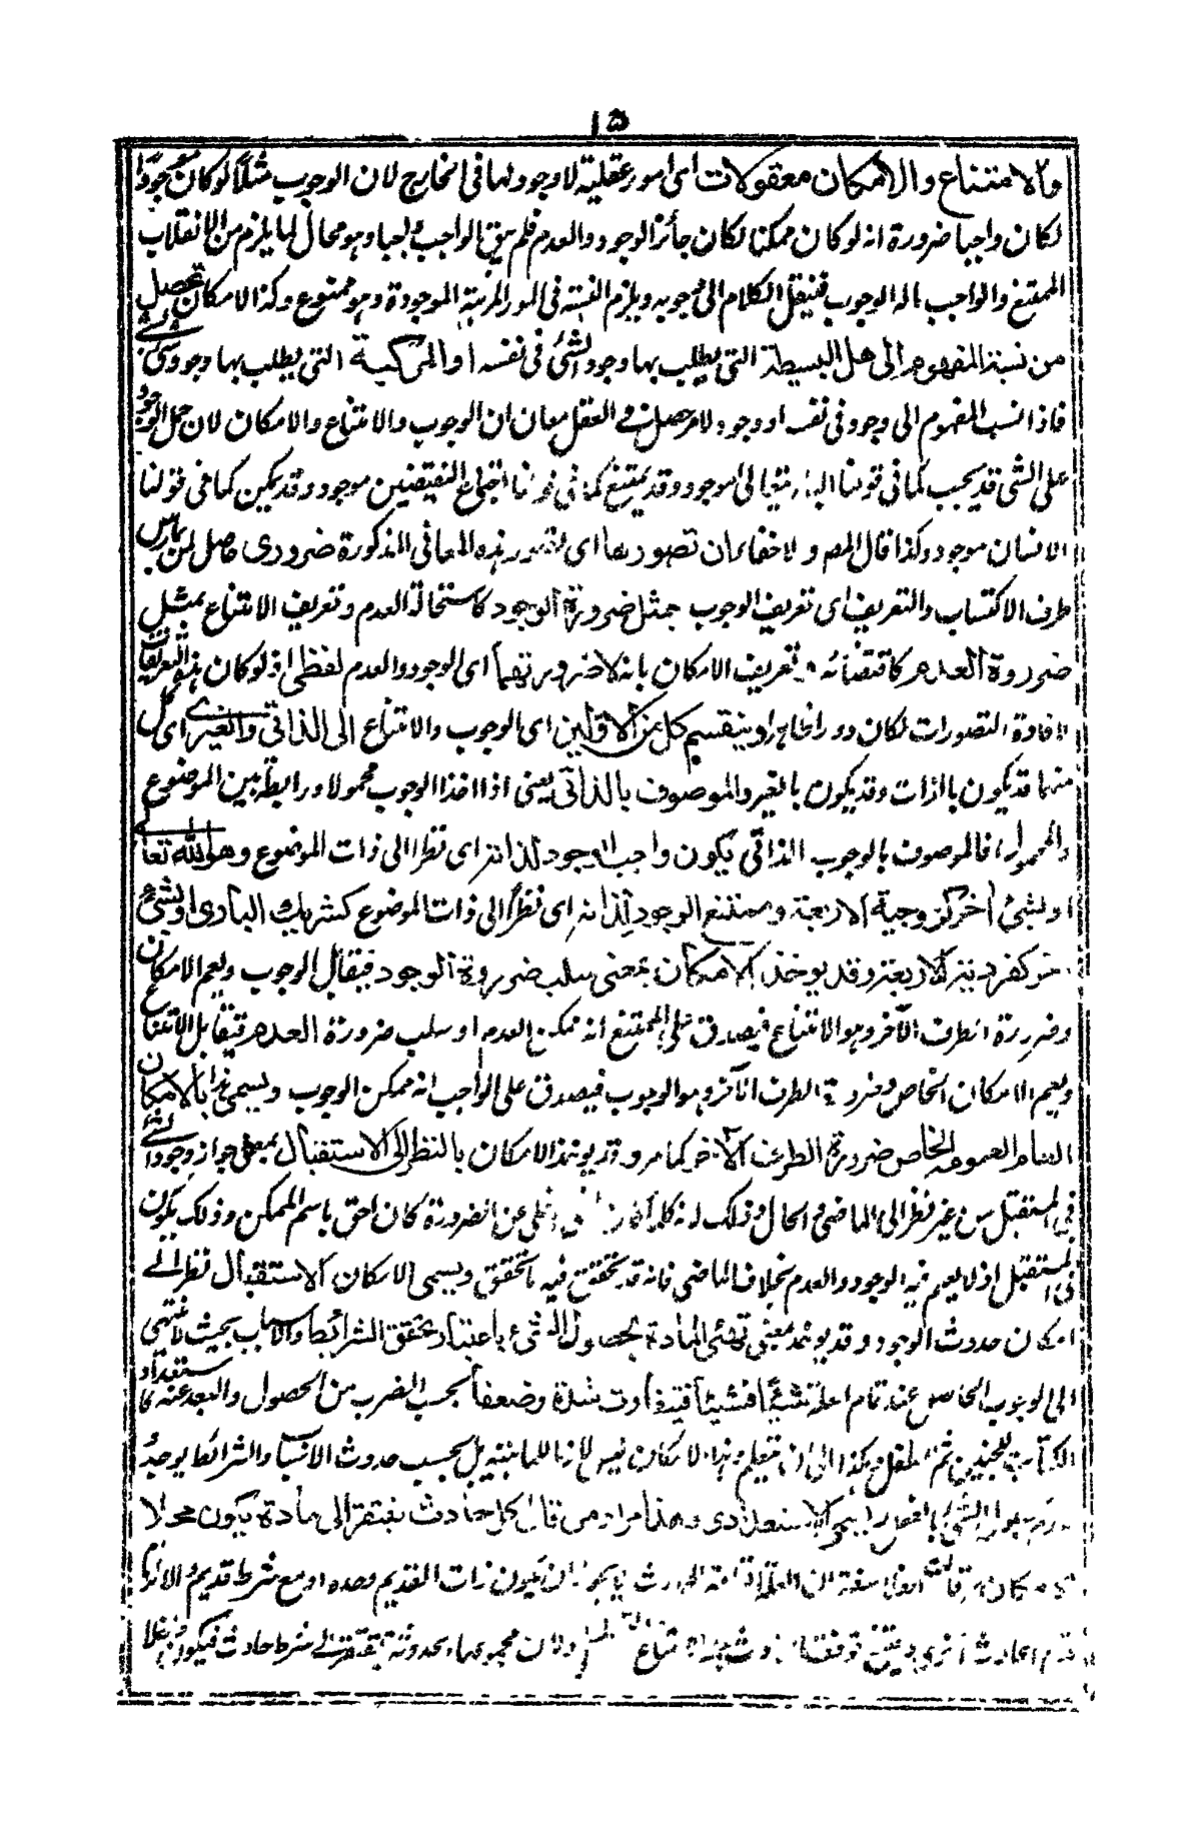 ١٥
والامتناع والامكان معقولات اى امور عقلية لا وجود لها فى الخارج لان الوجوب مثلا لو كان موجودا
لكان واجبا ضرورة انه لو كان ممكنا لكان جائز الوجود والعدم فلم يبق الواجب واجبا وهو محال لما يلزم من الانقلاب
الممتنع والواجب ماله الوجوب فننقل الكلام الى وجوبه ويلزم التس فى الامور المرتبة الموجودة وهو ممنوع وكذا الامكان تحصل
من نسبة المفهوم الى هل البسيطة التى يطلب بها وجود الشئ فى نفسه او المركبة التى يطلب بها وجود شئ لشئ
فاذا انسب المفهوم الى وجود فى نفسه او وجود لامر حصل فى العقل معان ان الوجوب والامتناع والامكان لان حمل الوجود
على الشئ قد يجب كما فى قولنا البارى تعالى موجود وقد يمتنع كما فى قولنا اجتماع النقيضين موجود وقد يمكن كما فى قولنا
الانسان موجود وكذا قال المص ولا خفاء ان تصورها اى تصور هذه المعانى المذكورة ضرورى حاصل لمن يمارس
طرف الاكتساب والتعريف اى تعريف الوجوب بمثل ضرورة الوجود كاستحالة العدم وتعريف الامتناع بمثل
ضرورة العدم كاقتضائه وتعريف الامكان بانه لا ضرورتهما اى الوجود والعدم لفظى اذ لو كان هذه التعريفات
لافادة التصورات لكان دورا ظاهرا وينقسم كل من الاولين اى الوجوب والامتناع الى الذاتى والغيرى اى كل
منهما قد يكون بالذات وقد يكون بالغير والموصوف بالذاتى يعنى اذا اخذ الوجوب محمولا ورابطة بين الموضوع
والمحمول فالموصوف بالوجوب الذاتى يكون واجب الوجود لذاته اى نظرا الى ذات الموضوع وهو الله تعالى
او لشئ آخر كزوجية الاربعة وممتنع الوجود لذاته اى نظرا الى ذات الموضوع كشريك البارى او لشئ
آخر كفردية الاربعة وقد يوخذ الامكان بمعنى سلب ضرورة الوجود فيقابل الوجوب ويعم الامكان
وضرورة الطرف الآخر وهو الامتناع فيصدق على الممتنع انه ممكن العدم او سلب ضرورة العدم فيقابل الامتناع
ويعم الامكان الخاص وضرورة الطرف الآخر وهو الوجوب فيصدق على الواجب انه ممكن الوجوب ويسمى هذا بالامكان
العام لعمومه الخاص ضرورة الطرف الآخر كما مر وقد يوخذ الامكان بالنظر الى الاستقبال بمعنى جواز وجود الشئ
فى المستقبل من غير نظر الى الماضى والحال وذلك لانه كلما كان اخلى عن الضرورة كان احق باسم الممكن وذلك يكون
فى المستقبل اذ لا يعلم فيه الوجود والعدم بخلاف الماضى فانه قد تحقق فيه ما تحقق ويسمى الامكان الاستقبال نظرا الى
امكان حدوث الوجود وقد يوخذ بمعنى تهئ المادة لحصول الشئ باعتبار تحقق الشرائط والاسباب بحيث لا ينتهى
الى الوجوب الحاصل عند تمام العلة شيئا فشيئا فيتفاوت شدة وضعفا بحسب القرب من الحصول والبعد عنه كاستعداد
الكتابة للجنين ثم للطفل وهكذا الى ان يتعلم وهذا الامكان ليس لازما للماهية بل بحسب حدوث الاسباب والشرائط يوجد
الشئ بالفعل الاستعدادى وهذا مراد من قال كل حادث يفتقر الى مادة يكون محلا
قالت الفلاسفة ان يكون ذات القديم وحده او مع شرط قديم
الحادث ولان مجموعها بحدوثه يفتقر الى شرط حادث فيكون